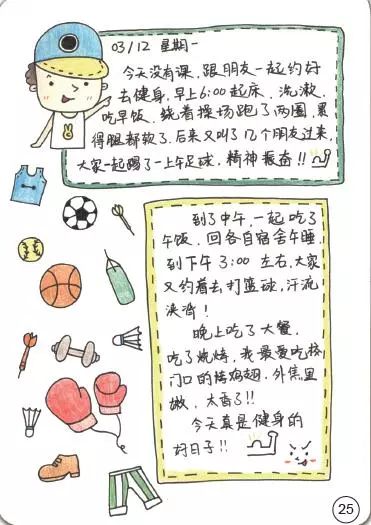 03/12 星期一
今天没有课，跟朋友一起约好
去健身，早上6:00起床、洗漱、
吃早饭、绕着操场跑了两圈，累
得腿都软了，后来又叫了几个朋友过来，
大家一起踢了一上午足球，精神振奋!!
到了中午，一起吃了
午饭，回各自宿舍午睡，
到下午3:00左右，大家
又约着去打篮球，汗流
浃背！
晚上吃了大餐，
吃了烧烤，我最爱吃校
门口的烤鸡翅，外焦里
嫩，太香了!!
今天真是健身的
好日子!!
25